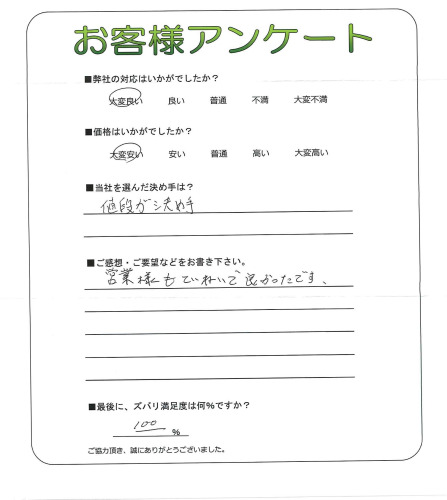 お客様アンケート
■弊社の対応はいかがでしたか?
大変良い 良い 普通 不満 大変不満
■価格はいかがでしたか?
大変安い 安い 普通 高い 大変高い
■当社を選んだ決め手は?
値段が決め手
■ご感想・ご要望などをお書き下さい。
営業様もていねいで良かったです、
■最後に、ズバリ満足度は何%ですか?
100 %
ご協力頂き、誠にありがとうございました。